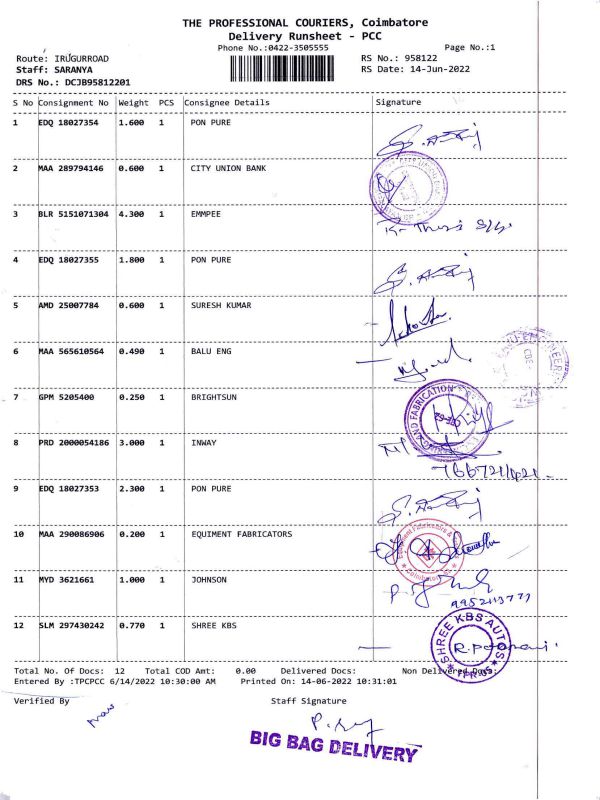 THE PROFESSIONAL COURIERS, Coimbatore
Delivery Runsheet - PCC
Phone No.:0422-3505555 Page No.:1
Route: IRUGURROAD RS No.: 958122
Staff: SARANYA RS Date: 14-Jun-2022
DRS No.: DCJB95812201
S No Consignment No Weight PCS Consignee Details Signature
1 EDQ 18027354 1.600 1 PON PURE
2 MAA 289794146 0.600 1 CITY UNION BANK
3 BLR 5151071304 4.300 1 EMMPEE
4 EDQ 18027355 1.800 1 PON PURE
5 AMD 25007784 0.600 1 SURESH KUMAR
6 MAA 565610564 0.490 1 BALU ENG
7 GPM 5205400 0.250 1 BRIGHTSUN
AND FABRICATION
8 PRD 2000054186 3.000 1 INWAY
9 EDQ 18027353 2.300 1 PON PURE
10 MAA 290086906 0.200 1 EQUIMENT FABRICATORS
11 MYD 3621661 1.000 1 JOHNSON
12 SLM 297430242 0.770 1 SHREE KBS
SHREE KBS AUTOS
Total No. Of Docs: 12 Total COD Amt: 0.00 Delivered Docs: Non Delivered Docs:
Entered By :TPCPCC 6/14/2022 10:30:00 AM Printed On: 14-06-2022 10:31:01
Verified By Staff Signature
BIG BAG DELIVERY